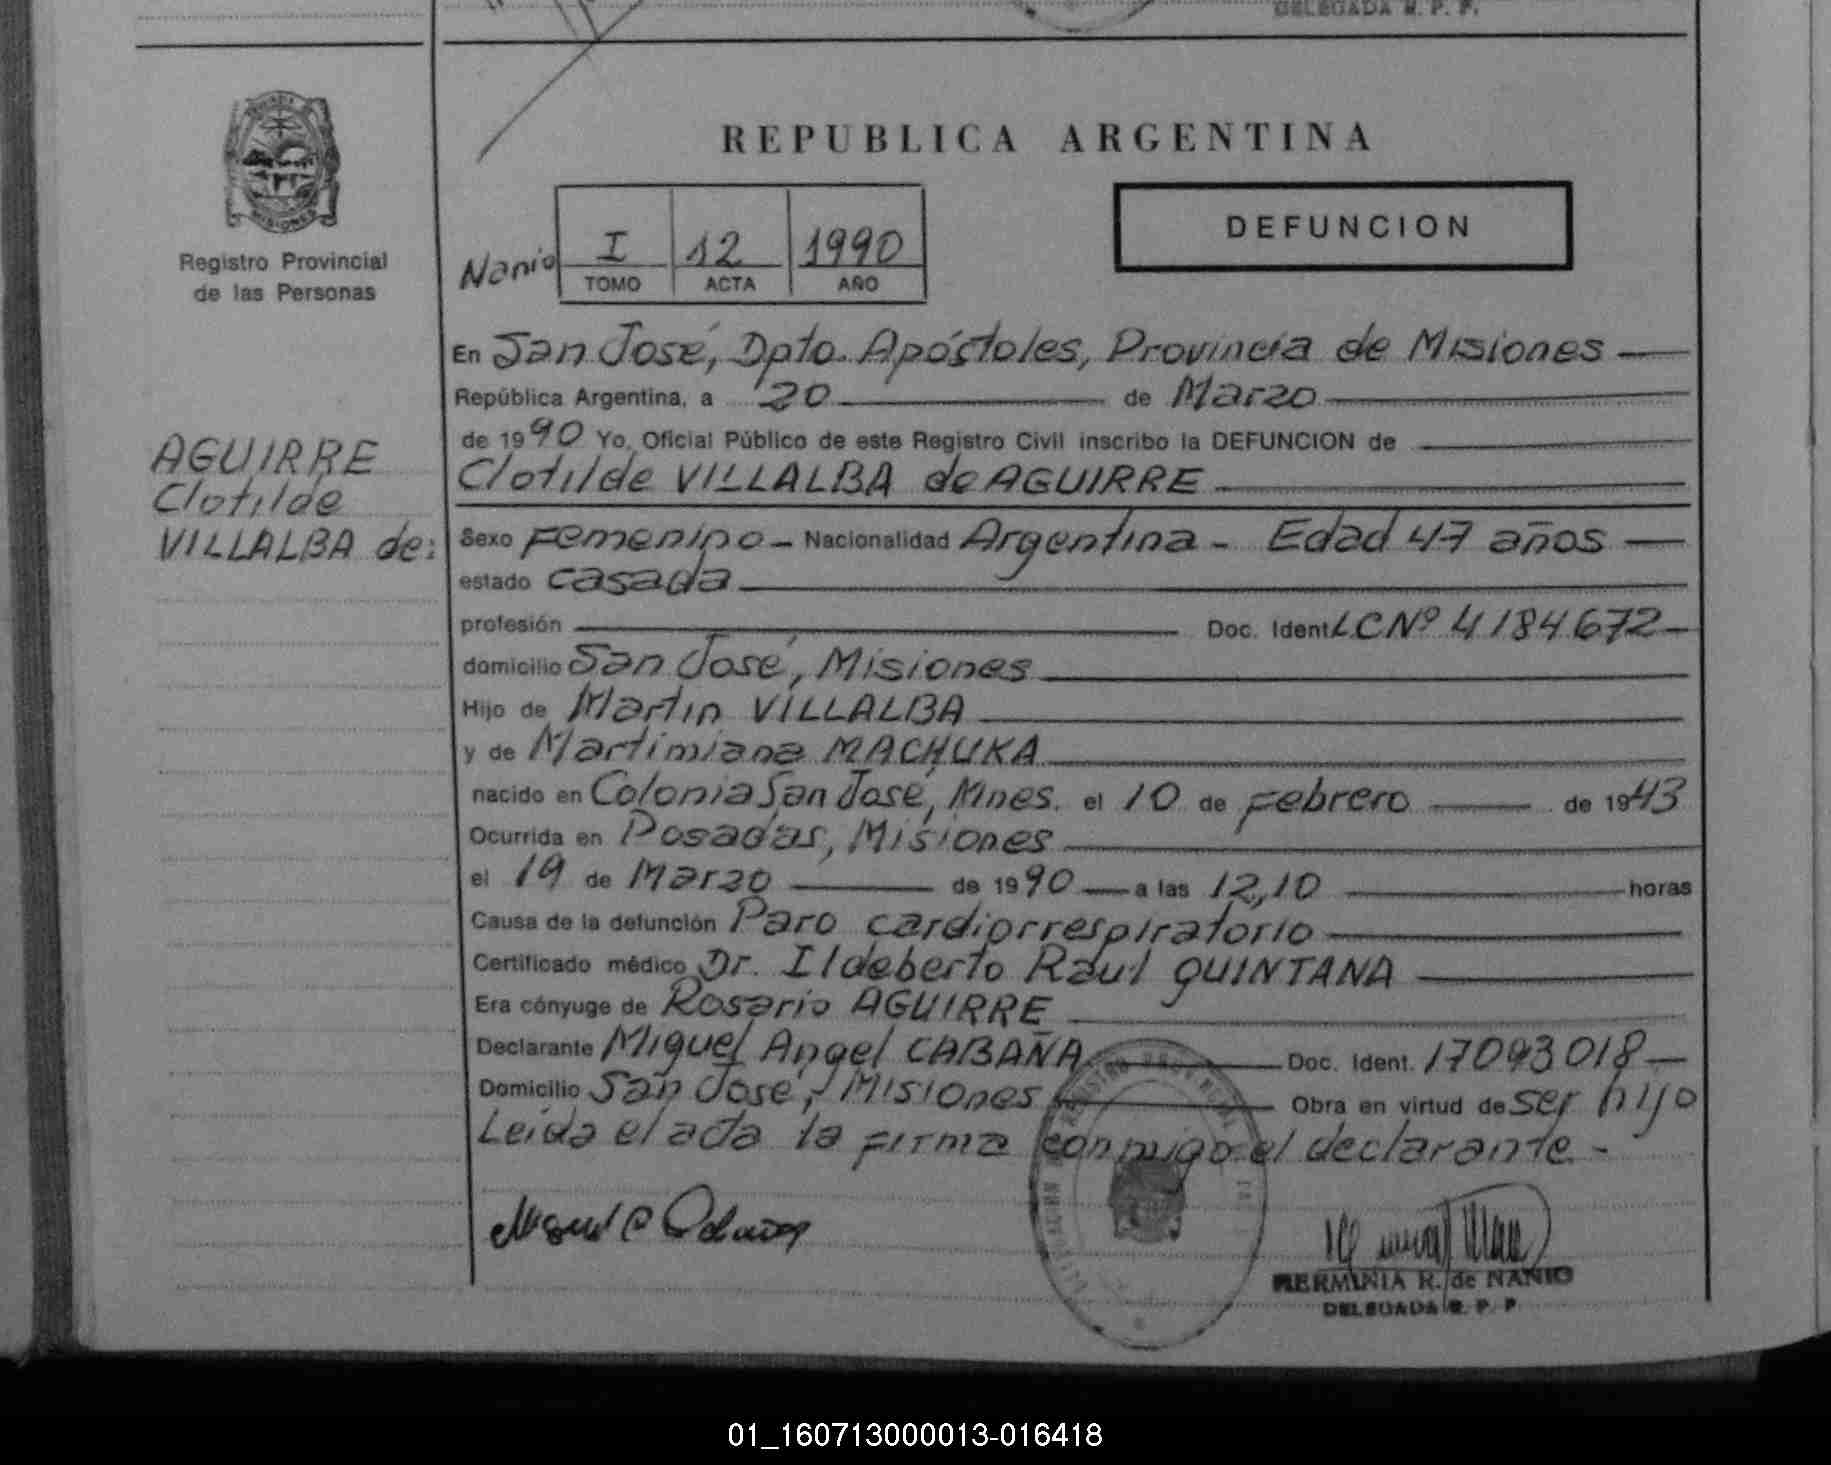 DELEGADA R. P. P.
REPUBLICA ARGENTINA
DEFUNCION
MISIONES
Registro Provincial
de las Personas
Nanio
I 12 1990
TOMO ACTA AÑO
En San José, Dpto. Apóstoles, Provincia de Misiones
República Argentina, a 20 de Marzo
de 1990 Yo, Oficial Público de este Registro Civil inscribo la DEFUNCION de
Clotilde VILLALBA de AGUIRRE
AGUIRRE
Clotilde
VILLALBA de:
Sexo Femenino - Nacionalidad Argentina - Edad 47 años
estado casada
profesión Doc. Ident LC Nº 4184672
domicilio San José, Misiones
Hijo de Martin VILLALBA
y de Martimiana MACHUKA
nacido en Colonia San José, Mnes. el 10 de Febrero de 1943
Ocurrida en Posadas, Misiones
el 19 de Marzo de 1990 a las 12,10 horas
Causa de la defunción Paro cardiorrespiratorio
Certificado médico Dr. Ildeberto Raul QUINTANA
Era cónyuge de Rosario AGUIRRE
Declarante Miguel Angel CABAÑA Doc. Ident. 17093018
Domicilio San José, Misiones Obra en virtud de ser hijo
Leida el acta la firma conmigo el declarante.-
HERMINIA R. de NANIO
DELEGADA R. P. P.
01_160713000013-016418